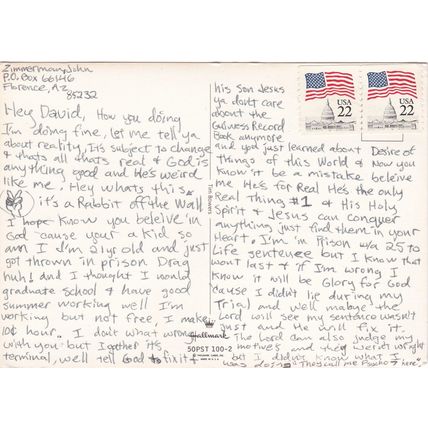 Zimmerman, John
P.O. Box 66146
Florence, Az
85232
Hey David, How you doing
I'm doing fine, let me tell ya
about reality, It's subject to change
& thats all thats real & God is
anything good and He's weird
like me. Hey whats this
it's a Rabbit off the Wall
I hope know you beleive in
God cause your a kid so
am I I'm 21yr old and just
got thrown in prison Drag
huh! and I thought I would
graduate school & have good
summer working well I'm
working but not free, I make
10¢ hour. I don't what wrong
wish you but I gather it's
terminal, well tell God to fix it &
his Son Jesus
ya dont care
about the
Guiness Record
Book anymore
and you just learned about Desire of
things of this World & Now you
know it be a mistake beleive
me He's for Real He's the only
Real Thing #1 & His Holy
Spirit & Jesus can conquer
anything just find them in your
Heart, I'm in Prison w/a 25 to
Life sentence but I know that
wont last & if I'm wrong I
know it will be Glory for God
cause I didn't lie during my
Trial and well maybe the
Lord will see my sentence wasn't
just and He will fix it.
The Lord can also judge my
motives and they weren't wright
but I didn't know what I
was doing "They call me Psycho here".
USA
22
USA
22
Hallmark
50PST 100-2